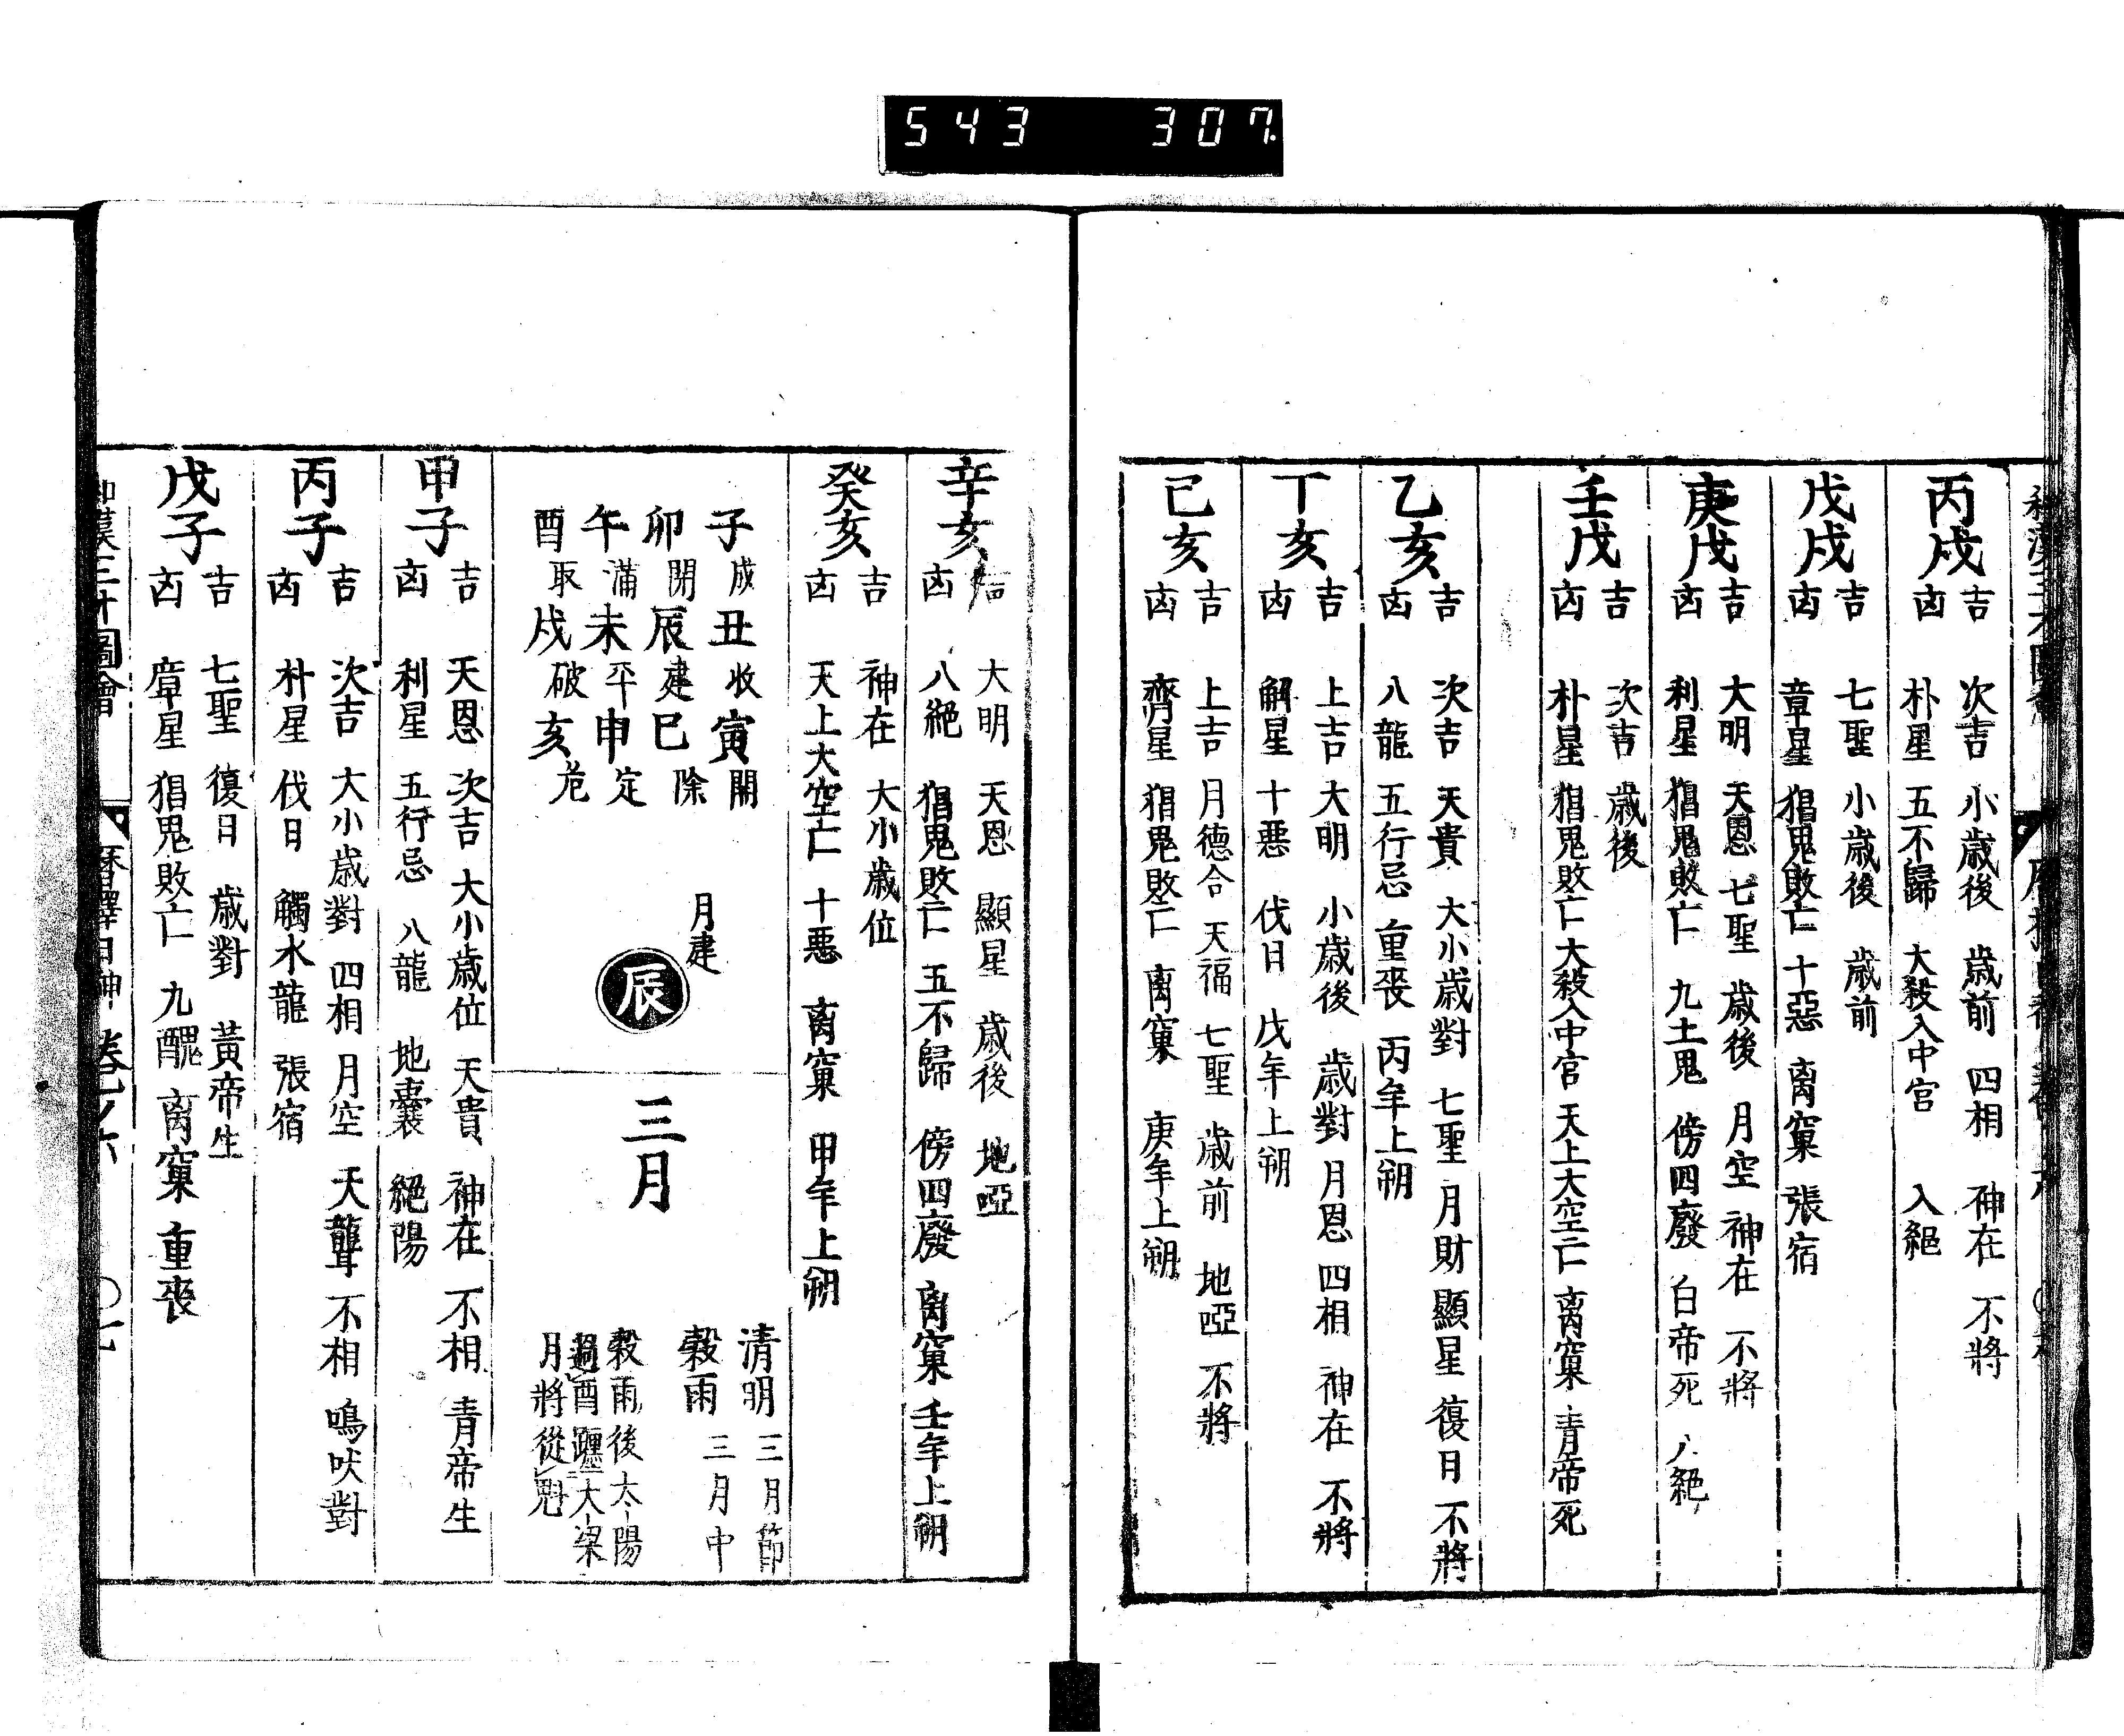 543 307
丙戌
吉 次吉 小歳後 歳前 四相 神在 不將
凶 朴星 五不歸 大殺入中宮 入絕
戊戌
吉 七聖 小歳後 歳前
凶 章星 猖鬼敗亡 十惡 离窠 張宿
庚戌
吉 大明 天恩 七聖 歳後 月空 神在 不將
凶 利星 猖鬼敗亡 九土鬼 傍四廢 白帝死 八絕
壬戌
吉 次吉 歳後
凶 朴星 猖鬼敗亡 大殺入中宮 天上大空亡 离窠 青帝死
乙亥
吉 次吉 天貴 大小歳對 七聖 月財 顯星 復日 不將
凶 八龍 五行忌 重丧 丙年上朔
丁亥
吉 上吉 大明 小歳後 歳對 月恩 四相 神在 不將
凶 觧星 十悪 伐日 戊年上朔
己亥
吉 上吉 月德合 天福 七聖 歳前 地啞 不將
凶 齊星 猖鬼敗亡 离窠 庚年上朔
辛亥
吉 大明 天恩 顯星 歳後 地啞
凶 八絕 猖鬼敗亡 五不歸 傍四廢 离窠 壬年上朔
癸亥
吉 神在 大小歳位
凶 天上大空亡 十悪 离窠 甲年上朔
子成 丑收 寅開
卯閉 辰建 巳除
午滿 未平 申定
酉取 戌破 亥危
月建
辰
三月
清明 三月節
穀雨 三月中
穀雨後太陽
過酉躔大梁
月將從魁
甲子
吉 天恩 次吉 大小歳位 天貴 神在 不相 青帝生
凶 利星 五行忌 八龍 地囊 絕陽
丙子
吉 次吉 大小歳對 四相 月空 天聾 不相 鳴吠對
凶 朴星 伐日 觸水龍 張宿
戊子
吉 七聖 復日 歳對 黃帝生
凶 章星 猖鬼敗亡 九醜 离窠 重丧
和漢三才圖會 暦擇日神 卷之六 〇七